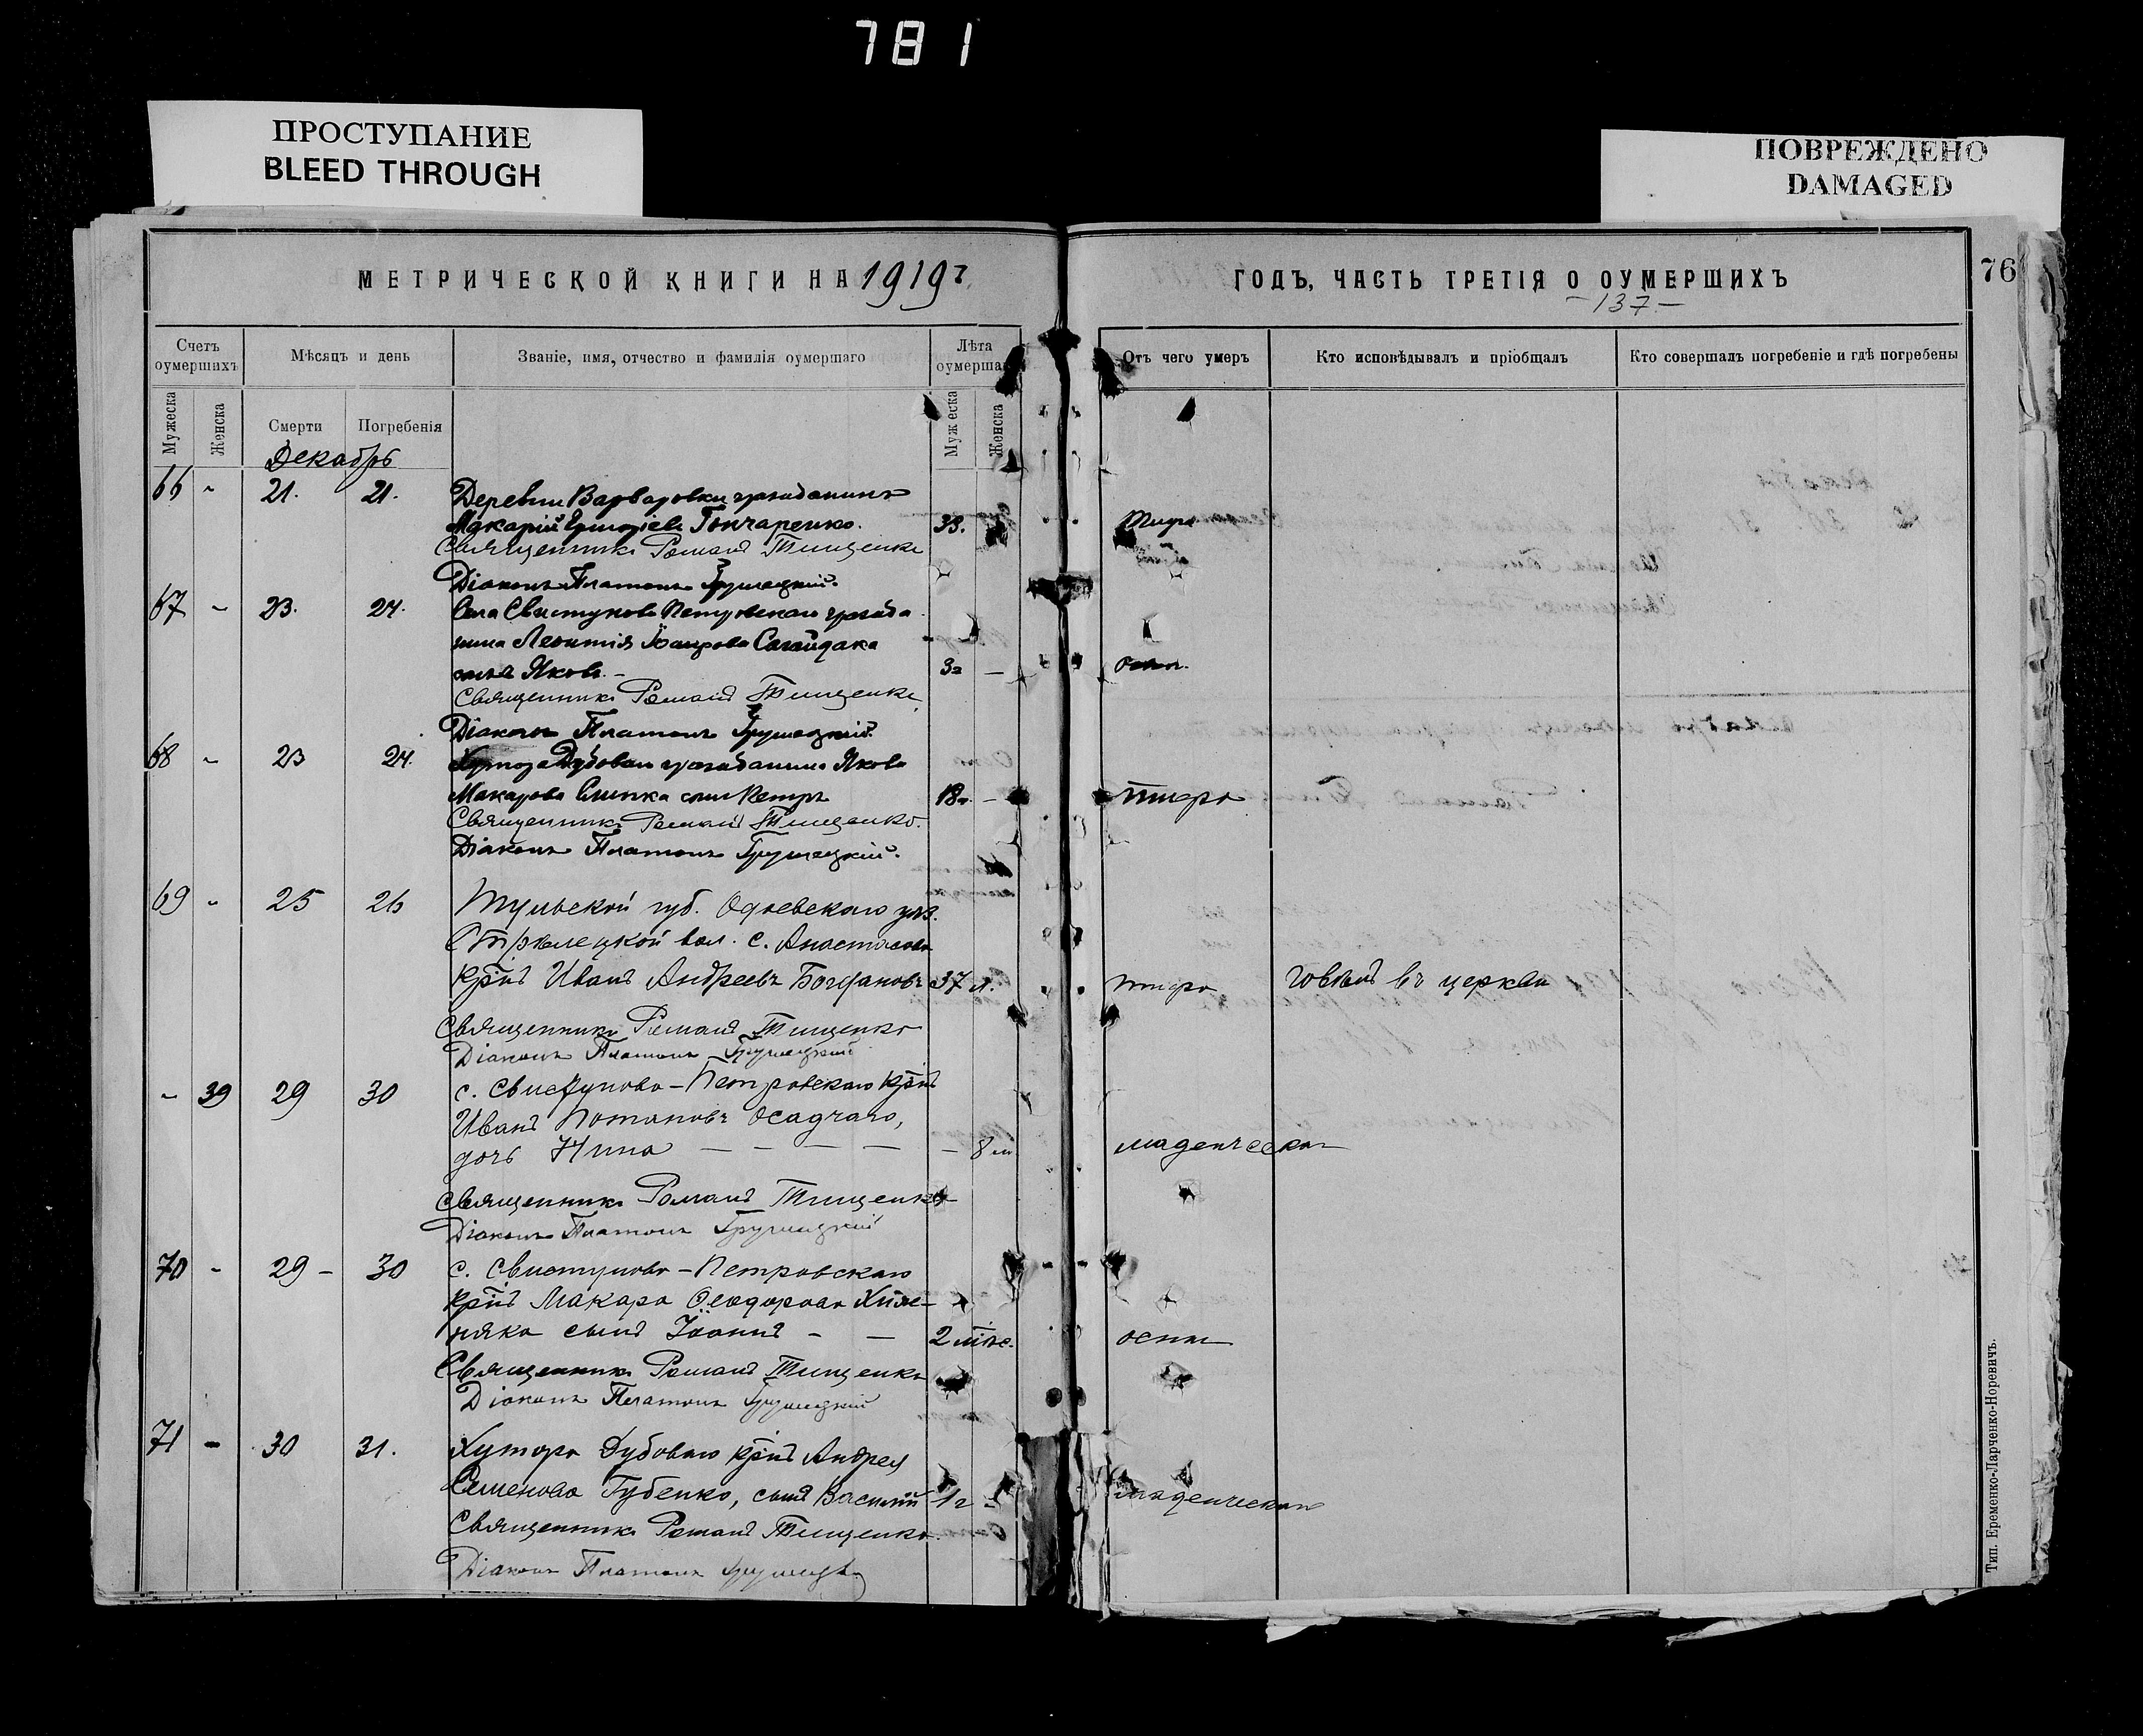 781
ПРОСТУПАНИЕ
BLEED THROUGH
ПОВРЕЖДЕНО
DAMAGED
МЕТРИЧЕСКОЙ КНИГИ НА 1919 г.
ГОДЪ, ЧАСТЬ ТРЕТІЯ О ОУМЕРШИХЪ
76
-137-
Счетъ оумершихъ
Мѣсяцъ и день
Званіе, имя, отчество и фамилія оумершаго
Лѣта оумершаго
Отъ чего умеръ
Кто исповѣдывалъ и пріобщалъ
Кто совершалъ погребеніе и гдѣ погребены
Мужеска
Женска
Смерти
Погребенія
Мужеска
Женска
Декабрь
66 - 21. 21. Деревни Варваровки гражданинъ
Макарій Гончаренко. 33. Тифа
Священникъ Романъ Тищенко
Діаконъ Платонъ Грушецкій.
67 - 23. 24. Села Свистунова Петровскаго гражда
нина Леонтія Сагайдака
сынъ Яковъ. - 3 г - оспы.
Священникъ Романъ Тищенко
Діаконъ Платонъ Грушецкій.
68 - 23 24. Хутора Дубоваго гражданина Якова
Макарова сынъ Петръ 18 л. - тифа
Священникъ Романъ Тищенко.
Діаконъ Платонъ Грушецкій.
69 - 25 26 Тульской губ. Одоевскаго уѣз.
Стрѣлецкой вол. с. Анастасова
крѣнъ Иванъ Андреевъ Богдановъ 37 л. тифа говѣлъ въ церкви
Священникъ Романъ Тищенко
Діаконъ Платонъ Грушецкій
- 39 29 30 с. Свистуново-Петровскаго крѣнъ
Иванъ Потаповъ Осадчаго,
дочь Нина - - - - - 8 м младенческая
Священникъ Романъ Тищенко
Діаконъ Платонъ Грушецкій
70 - 29 - 30 с. Свистуново-Петровскаго
крѣнъ Макара Ѳеодорова Хиж-
няка сынъ Іоаннъ - - 2 мѣс. оспы
Священникъ Романъ Тищенко
Діаконъ Платонъ Грушецкій
71 - 30 31. Хутора Дубоваго крѣнъ Андрея
Семенова Губенко, сынъ Василій 1 г - младенческая
Священникъ Романъ Тищенко.
Діаконъ Платонъ Грушецк.
Тип. Еременко-Ларченко-Норевичъ.